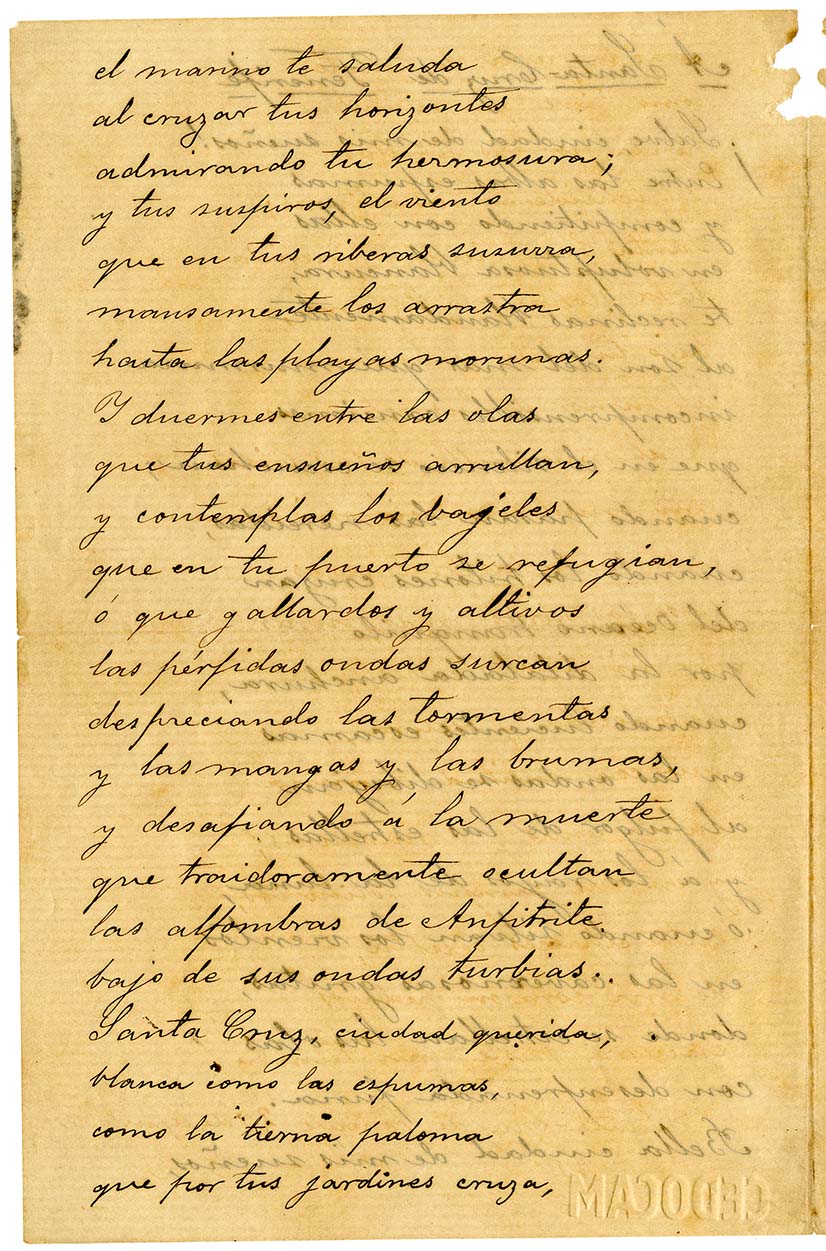 el marino te saluda
al cruzar tus horizontes
admirando tu hermosura;
y tus suspiros, el viento
que en tus riberas susurra,
mansamente los arrastra
hasta las playas morunas.
Y duermes entre las olas
que tus ensueños arrullan,
y contemplas los bajeles
que en tu puerto se refugian,
ó que gallardos y altivos
las pérfidas ondas surcan
despreciando las tormentas
y las mangas y las brumas,
y desafiando á la muerte
que traidoramente ocultan
las alfombras de Anfitrite
bajo de sus ondas turbias..
Santa Cruz, ciudad querida,
blanca como las espumas,
como la tierna paloma
que por tus jardines cruza,
CEDOCAM